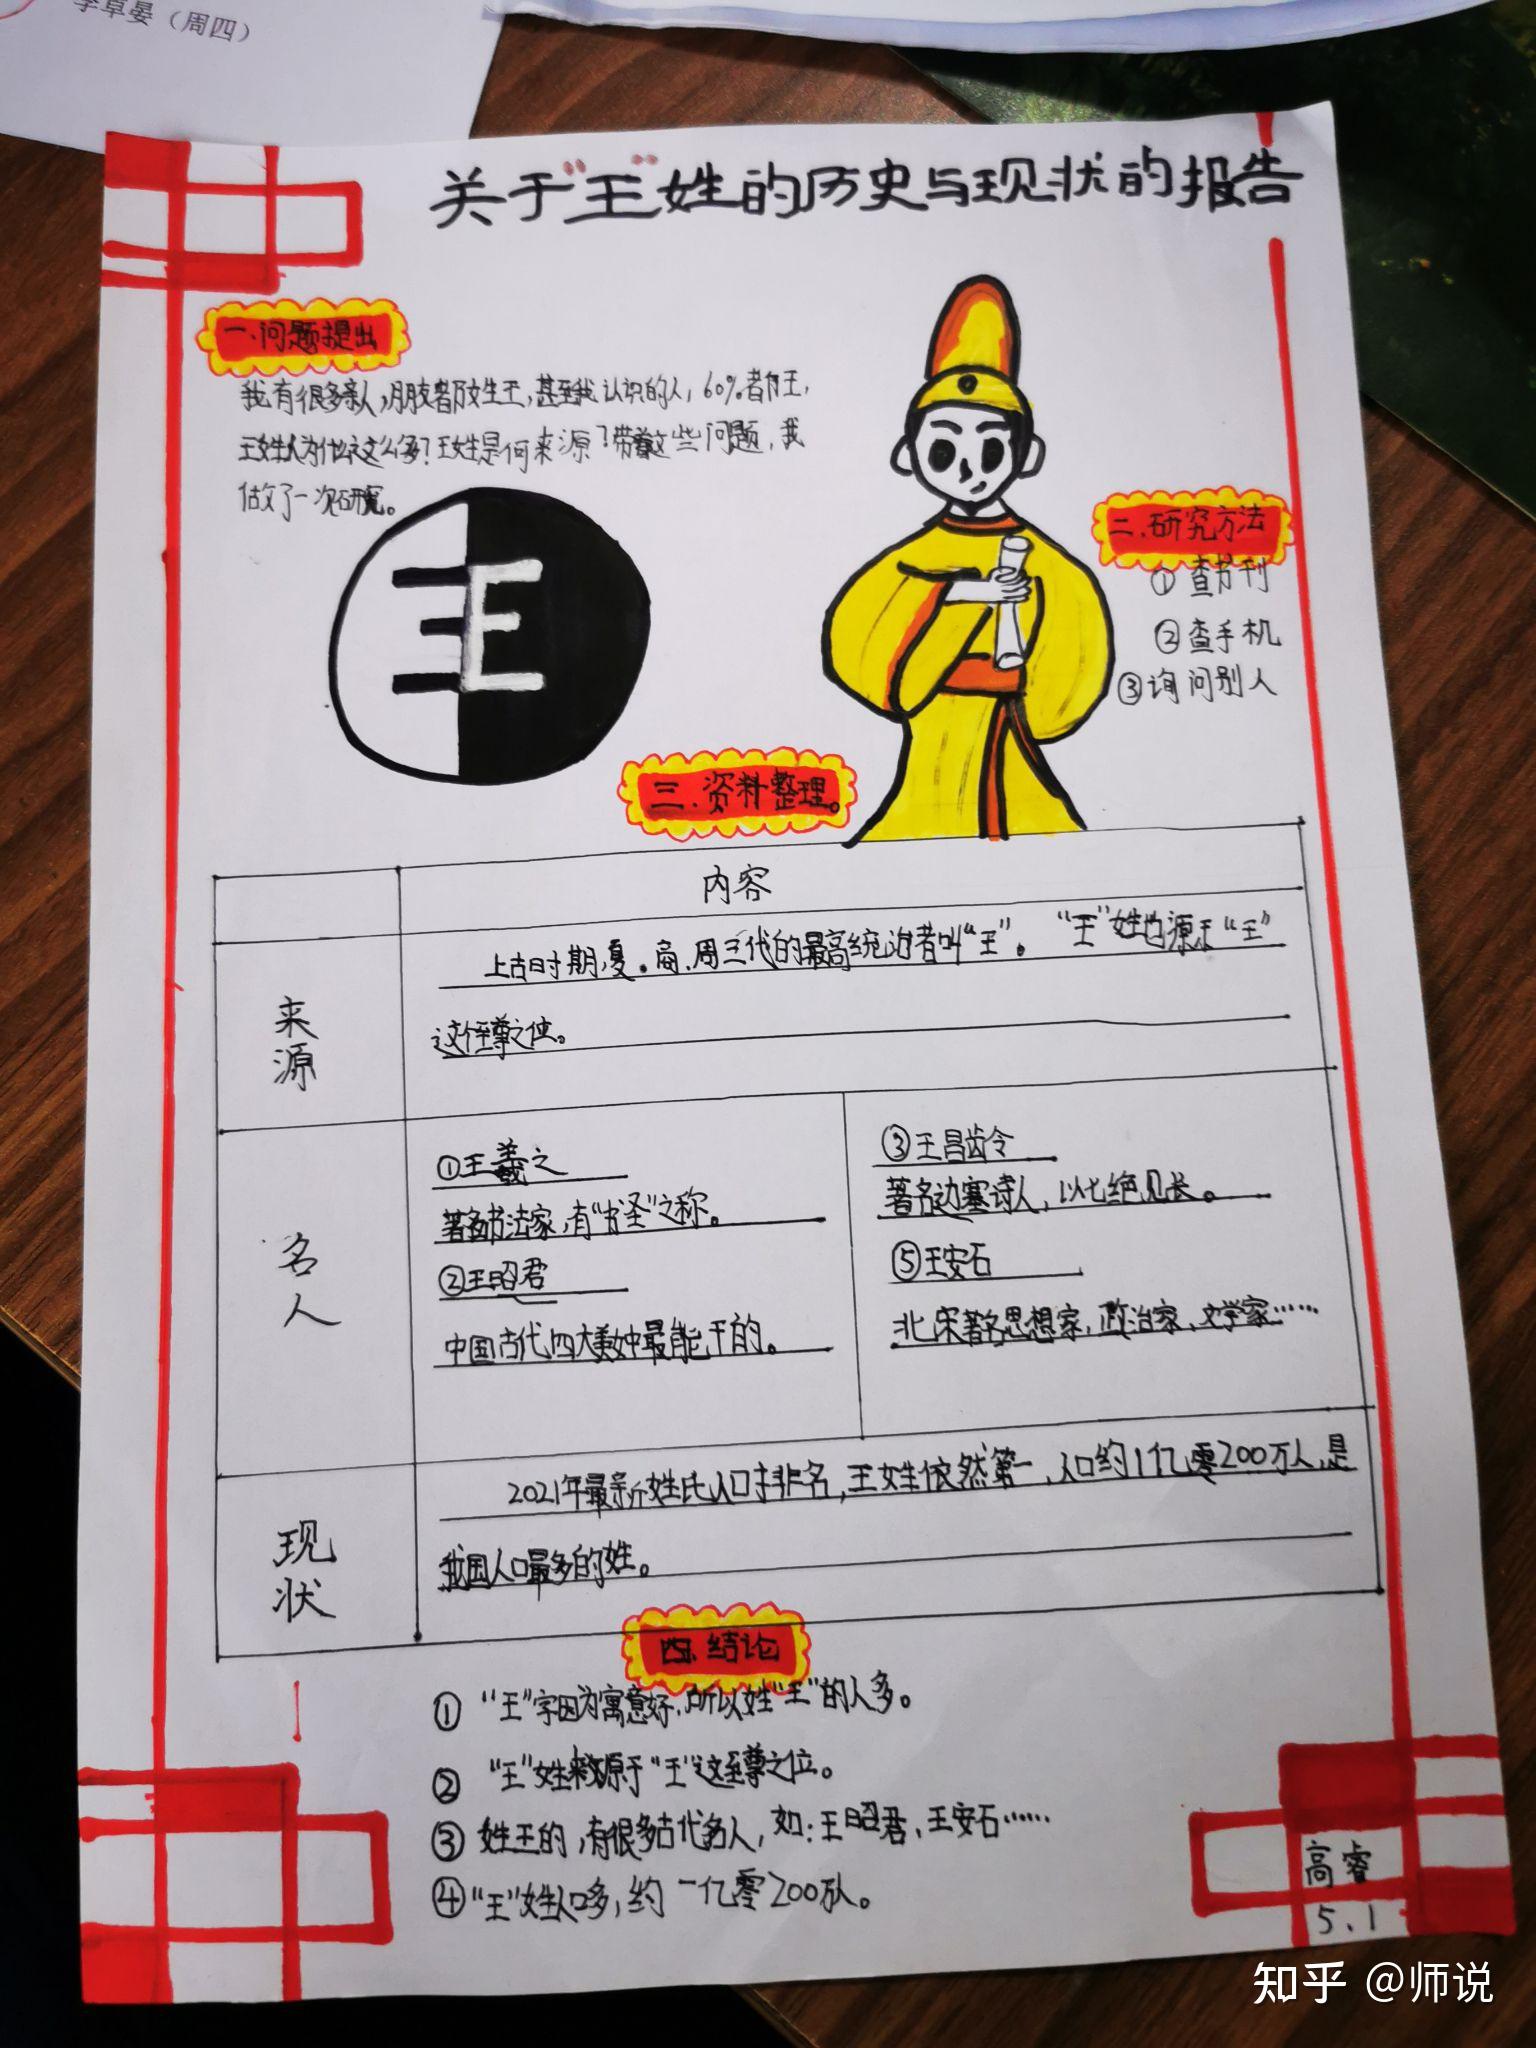 李卓晏（周四）
关于"王"姓的历史与现状的报告
一.问题提出
我有很多亲人,朋友都姓王,甚至我认识的人,60%都姓王,
王姓人为什么这么多?王姓是何来源?带着这些问题,我
做了一次研究。
王
二.研究方法
①查书刊
②查手机
③询问别人
三.资料整理。
内容
来源
上古时期,夏、商、周三代的最高统治者叫"王"。"王"姓也源于"王"
这个至尊之位。
名人
①王羲之
著名书法家,有"书圣"之称。
②王昭君
中国古代四大美女中最能干的。
③王昌龄
著名边塞诗人,以七绝见长。
⑤王安石
北宋著名思想家,政治家、文学家……
现状
2021年最新姓氏人口排名,王姓依然第一,人口约1亿零200万人,是
我国人口最多的姓。
四.结论
① "王"字因为寓意好,所以姓"王"的人多。
② "王"姓来源于"王"这至尊之位。
③ 姓王的,有很多古代名人,如:王昭君、王安石……
④ "王"姓人口多,约一亿零200万人。
高睿
5.1
知乎 @师说